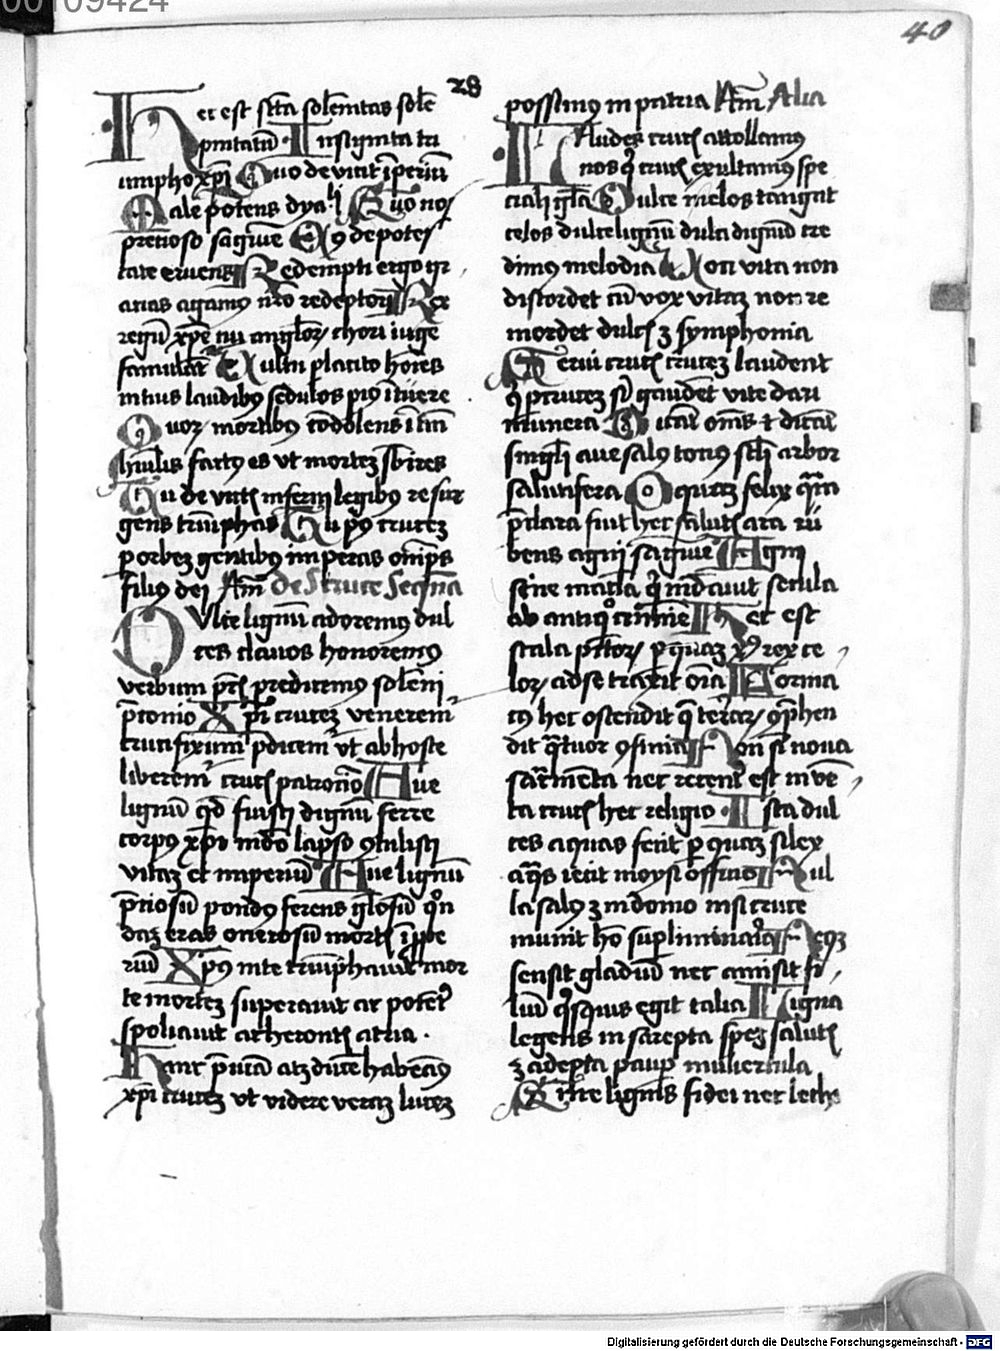 00109424
40
28
Hec est scta solemitas sole
pnitatu Insignita tri
umpho xpi Quo devicit iperiu
Male potens dyali Quo nos
precioso sagwine Eius de potes
tate eruens Redempti ergo gr
acias agamus nro redeptori Rex
regu xpe cui anglor chori iuge
famulat Exulta placito hoies
mtius laudibus sedulos pius ituere
Quor mortibus codolens i tm
hulis factus es ut mortez sbires
Tu de victis inferni legibus resur
gens triuphas Tu post crucez
p orbez gentibus imperas omps
filius dei Am De S cruce Seqncia
Dulce lignu adoremus dul
ces clavos honoremus
verbum pris predicemus soleni
preconio Xpi crucez venerem
crucifixum pdicem ut ab hoste
liberem crucis patrono Ave
lignu qd fuisti dignu ferre
corpus xpi mdo lapso 9tulisti
vitaz et imperiu Ave lignu
preciosu pondus ferens gliosu qn
daz eras onerosu mortis i ppe
riu Xpus in te triuphavit mor
te mortez superavit ac potet
spoliavit acherontis atria
Hanc picta atz ducte habeam
xpi crucez ut videre veraz lucez
possimus in patria Am Alia
Laudes crucis attollamus
nos q crucis exultamus spe
ciali glia Dulce melos tangat
celos dulce lignu dulci dignu cre
dimus melodia Voci vita non
discordet cu vox vitaz non re
mordet dulcis z symphonia
Servi crucis crucez laudent
q p crucez si gaudent vite dari
munera Dicat oms et dicat
singli ave salus totius scli arbor
salutifera O quaz felix qm
pclara fuit hec salutis ara ru
bens agni sagwie Agni
sine macla q mdavit secula
ab antiquo crimine Hec est
scala pctor p quaz xps rex ce
lor ad se traxit oia Forma
cuius hec ostendit q terar 9phen
dit qtuor 9finia Non st nova
sacmenta nec recent est inve
ta crucis hec religio Ista dul
ces aquas fecit p quaz silex
aqas iecit moysi officio Nul
la salus z in domo nisi cruce
munit ho supliminaria Neqz
sensit gladiu nec amisit fi
liu qsquis egit talia Ligna
legens in sarepta spez salutis
z adepta paup muliercula
Sine lignis fidei nec lechi
Digitalisierung gefördert durch die Deutsche Forschungsgemeinschaft - DFG